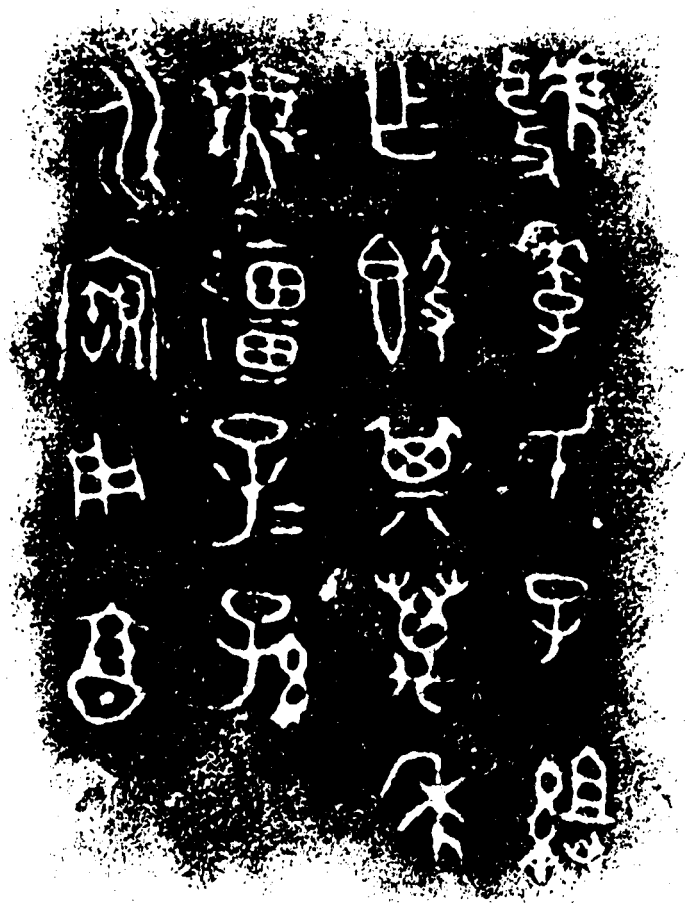 虢季氏子組
乍𣪘其萬年
無疆子＝孫
永寶用享